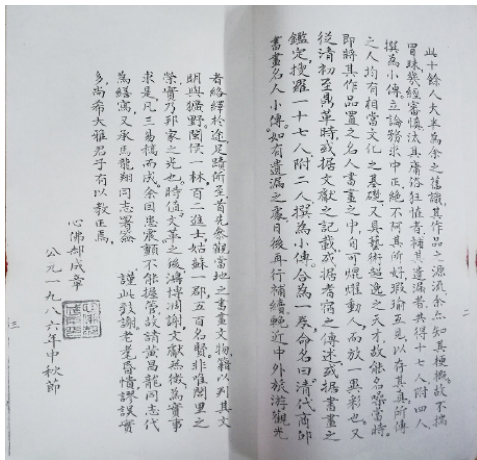 此十餘人大半為余之舊識其作品之源流余亦知其梗概故不揣
冒昧與經審慎汰其庸俗狂怪者補其遺漏者共得十七人附四人
撰為小傳立論務求中正絕不阿其所好瑕瑜互見以存其真所傳
之人均有相當文化之基礎又具藝術超逸之天才故能名噪當時
即將其作品置之名人書畫之中自可焜燿動人而放一異彩也又
從清初至鼎革時或據文獻之記載或據耆宿之傳述或據書畫之
鑑定搜羅一十七人附二人撰為小傳合為一卷命名曰清代商邱
書畫名人小傳如有遺漏之處日後再行補續輓近中外旅游觀光
者絡繹於途足蹟所至首先參觀當地之書畫文物籍以列其文
明與獷野閩侯一林百二進士姑蘇一郡五百名賢非唯閭里之
榮實乃邦家之光也時值文革之後溥博淵謝文獻無徵為實事
求是凡三易稿而成余因患震顫不能握管故請黃昌龍同志代
為繕寫又承馬龍翔同志署簽 謹此致謝老耄昏憒謬誤實
多尚希大雅君子有以教正焉
心佛郝成章
公元一九八六年中秋節
二
三